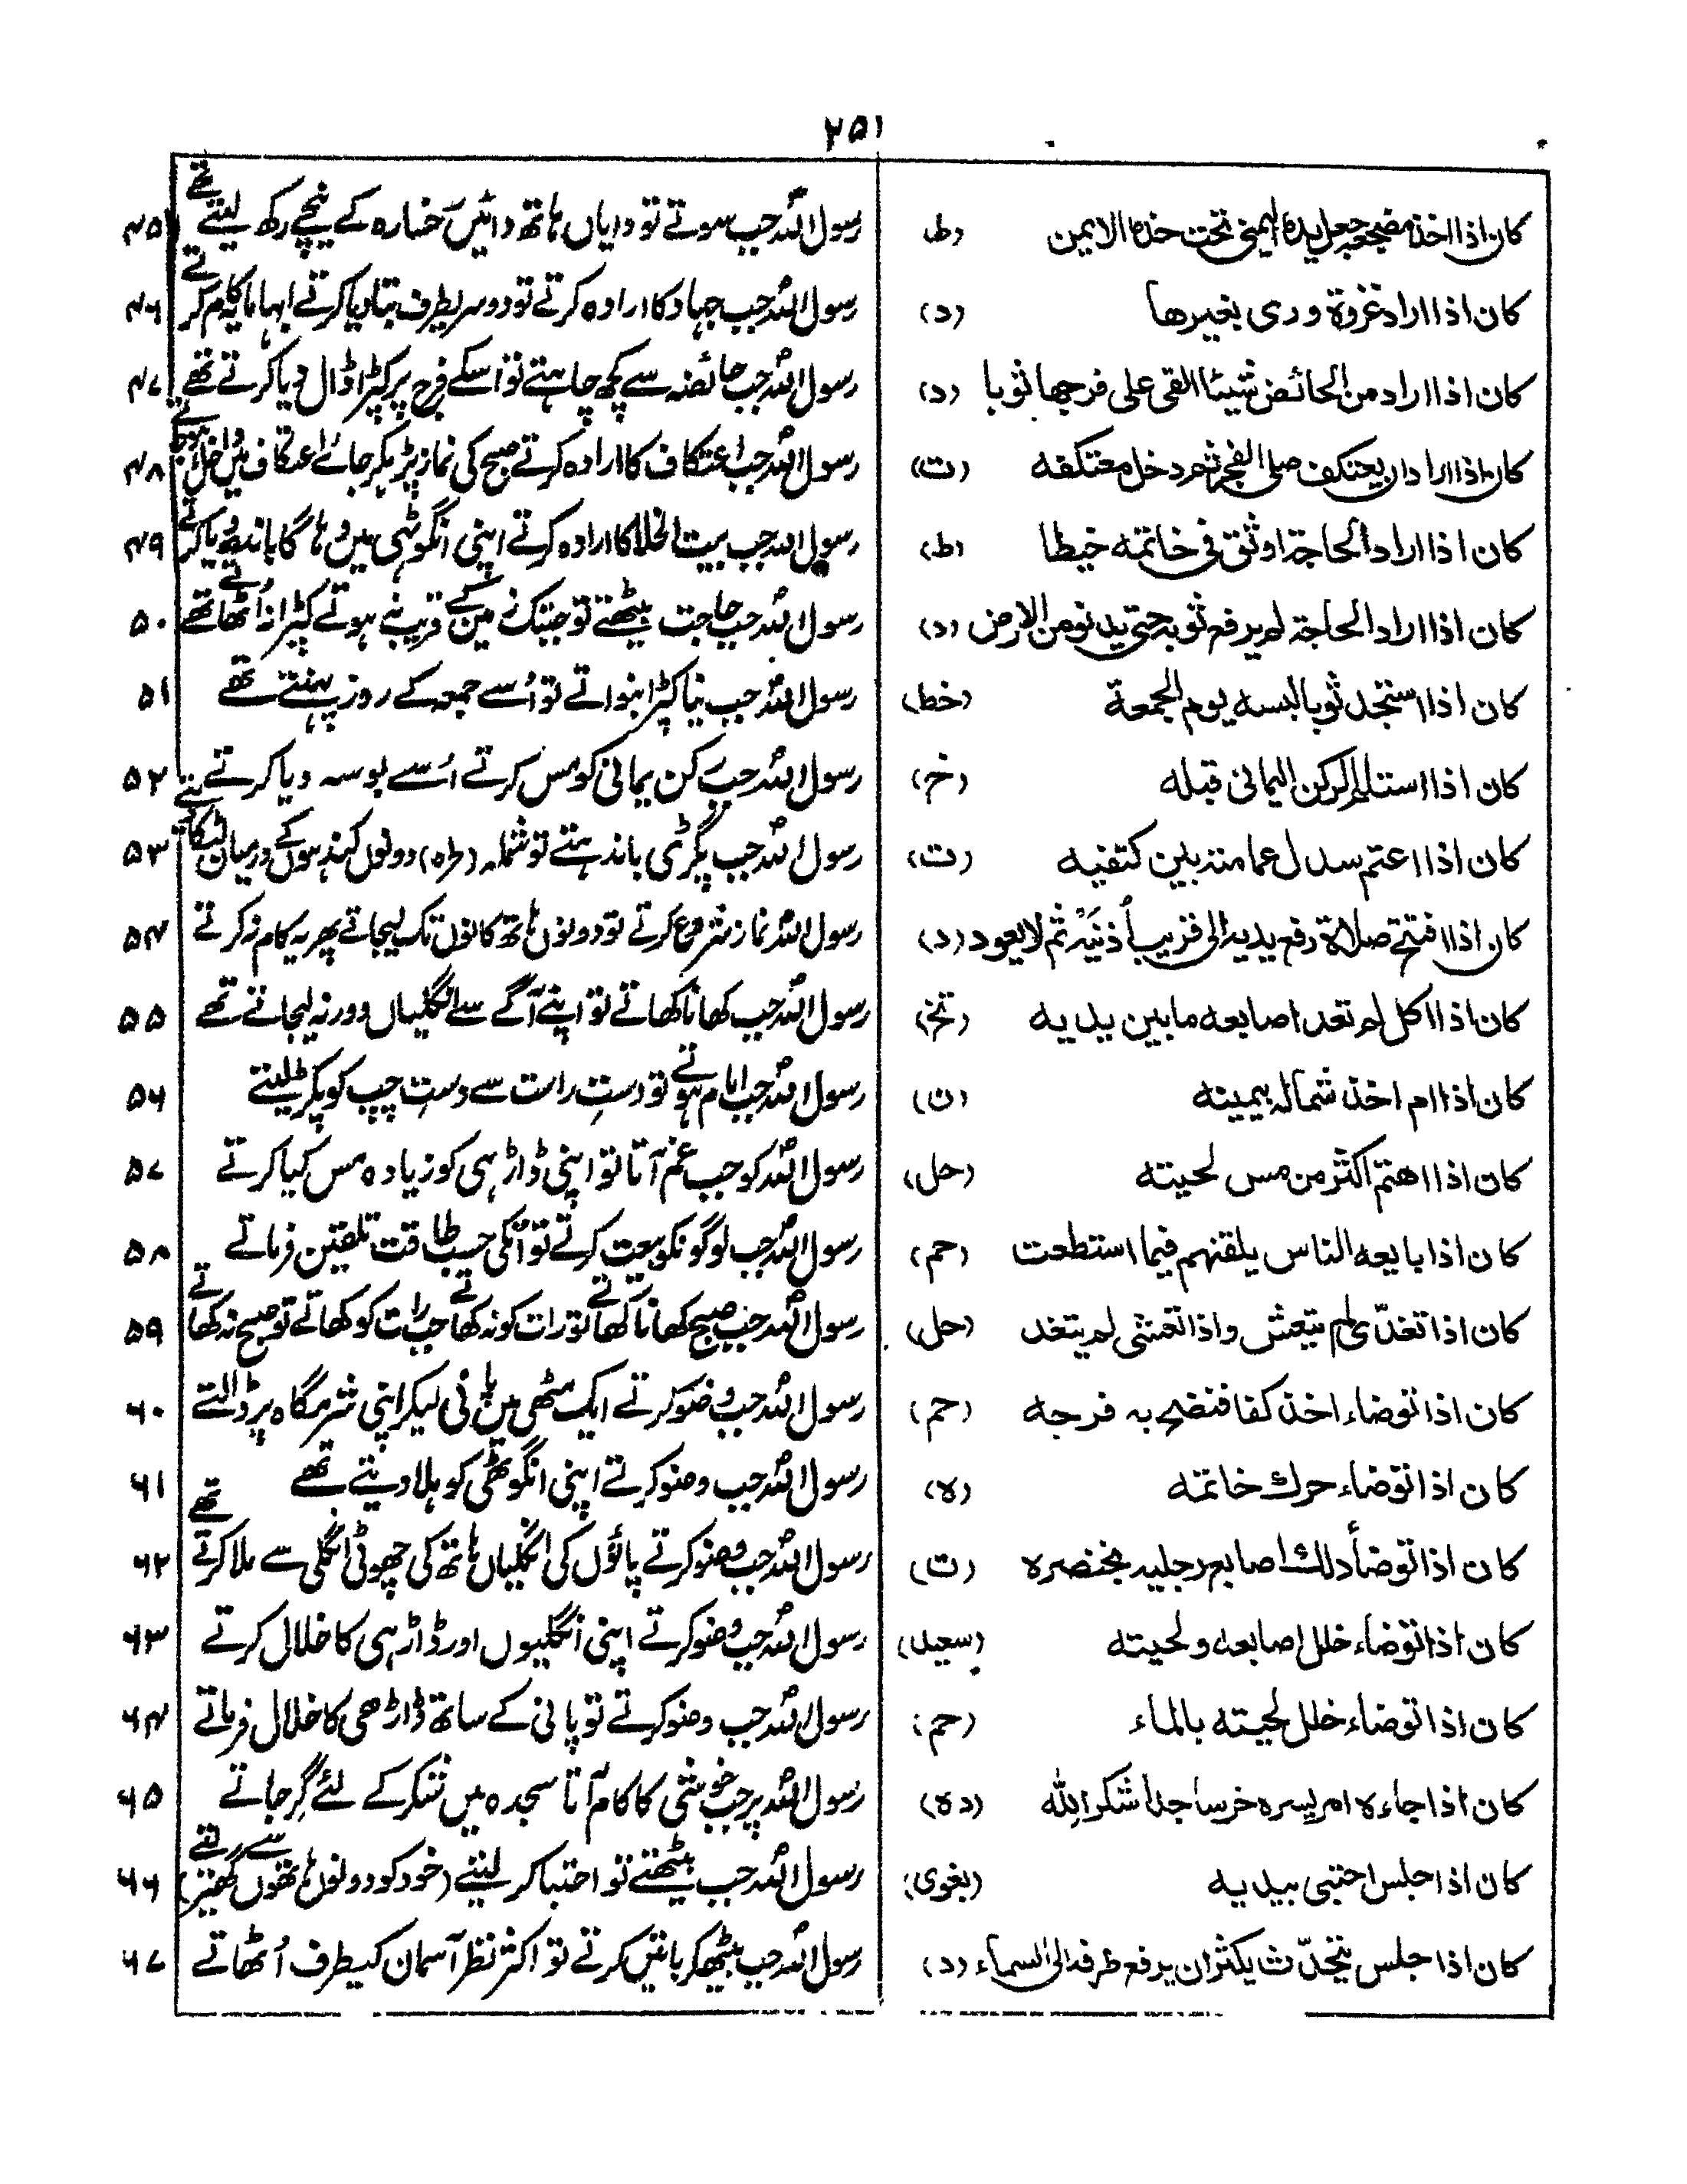 ۲۵۱
کان اذا اخذ مضجعہ جعل یدہ الیمنی تحت خدہ الایمن (طـ) رسول اللہؐ جب سوتے تو دایاں ہاتھ دائیں رخسارہ کے نیچے رکھ لیتے تھے ۴۵
کان اذا اراد غزوة وری بغیرھا (د) رسول اللہؐ جب جہاد کا ارادہ کرتے تو دوسریطرف بتادیا کرتے ابہاماً یہ کام کرتے ۴۶
کان اذا اراد من الحائض شیئا القی علی فرجھا ثوبا (د) رسول اللہؐ جب حائضہ سے کچھ چاہتے تو اسکے فرج پر کپڑا ڈال دیا کرتے تھے ۴۷
کان اذا اراد ان یعتکف صلی الفجر ثم دخل معتکفہ (ت) رسول اللہؐ جب اعتکاف کا ارادہ کرتے صبح کی نماز پڑہکر جائے اعتکاف میں داخل ہوجاتے ۴۸
کان اذا اراد الحاجۃ اوثق فی خاتمہ خیطا (ط) رسول اللہؐ جب بیت الخلا کا ارادہ کرتے اپنی انگوٹہی میں دہاگا باندھ دیا کرتے ۴۹
کان اذا اراد الحاجۃ لم یرفع ثوبہ حتی یدنو من الارض (د) رسول اللہؐ جب حاجت بیٹھتے تو جبتک زمین کے قریب نہ ہوتے کپڑا نہ اُٹھاتے تھے ۵۰
کان اذا استجد ثوبا لبسہ یوم الجمعۃ (خط) رسول اللہؐ جب نیا کپڑا بنواتے تو اُسے جمعہ کے روز پہنتے تھے ۵۱
کان اذا استلم الرکن الیمانی قبلہ (خ) رسول اللہؐ جب رکن یمانی کو مس کرتے اُسے بوسہ دیا کرتے ۵۲
کان اذا اعتم سدل عمامتہ بین کتفیہ (ت) رسول اللہؐ جب پگڑی باندہتے تو شملہ (طرہ) دونوں کندہوں کے درمیان لٹکاتے ۵۳
کان اذا افتتح صلاة رفع یدیہ الی قریب أذنیہ ثم لا یعود (د) رسول اللہؐ نماز شروع کرتے تو دونوں ہاتھ کانوں تک لیجاتے پھر یہ کام نہ کرتے ۵۴
کان اذا اکل لم تعد اصابعہ ما بین یدیہ (تخ) رسول اللہؐ جب کھانا کھاتے تو اپنے آگے سے انگلیاں دور نہ لیجاتے تھے ۵۵
کان اذا ام اخذ شمالہ بیمینہ (ن) رسول اللہؐ جب امام ہوتے تو دستِ راست سے دستِ چپ کو پکڑ لیتے ۵۶
کان اذا اھتم اکثر من مس لحیتہ (حل) رسول اللہؐ کو جب غم آتا تو اپنی ڈاڑہی کو زیادہ مس کیا کرتے ۵۷
کان اذا بایعہ الناس یلقنہم فیما استطعت (حم) رسول اللہؐ جب لوگونکو بیعت کرتے تو انکی حسب طاقت تلقین فرماتے ۵۸
کان اذا تغدّی لم یتعش واذا تعشی لم یتغد (حل) رسول اللہؐ جب صبح کھانا کھاتے تو رات کو نہ کھاتے جب رات کو کھاتے تو صبح نہ کھاتے ۵۹
کان اذا توضاء اخذ کفا فنضح بہ فرجہ (حم) رسول اللہؐ جب وضو کرتے ایک مٹھی میں پانی لیکر اپنی شرمگاہ پر ڈالتے ۶۰
کان اذا توضاء حرك خاتمہ (ہ) رسول اللہؐ جب وضو کرتے اپنی انگوٹھی کو ہلا دیتے تھے ۶۱
کان اذا توضأ دلك اصابع رجلیہ بخنصرہ (ت) رسول اللہؐ جب وضو کرتے پاؤں کی انگلیاں ہاتھ کی چھوٹی انگلی سے ملا کرتے تھے ۶۲
کان اذا توضاء خلل اصابعہ ولحیتہ (سعید) رسول اللہؐ جب وضو کرتے اپنی انگلیوں اور ڈاڑہی کا خلال کرتے ۶۳
کان اذا توضاء خلل لحیتہ بالماء (حم) رسول اللہؐ جب وضو کرتے تو پانی کے ساتھ ڈاڑھی کا خلال فرماتے ۶۴
کان اذا جاءہ امر یسرہ خر ساجداً شکرا للہ (دہ) رسول اللہؐ پر جب خوشی کا کام آتا سجدہ میں شکر کے لئے گر جاتے ۶۵
کان اذا جلس احتبی بیدیہ (بغوی) رسول اللہؐ جب بیٹھتے تو احتبا کر لیتے (خود کو دونوں ہاتھوں سے گھیر لیتے) ۶۶
کان اذا جلس یتحدّث یکثر ان یرفع طرفہ الی السماء (د) رسول اللہؐ جب بیٹھکر باتیں کرتے تو اکثر نظر آسمان کیطرف اُٹھاتے ۶۷